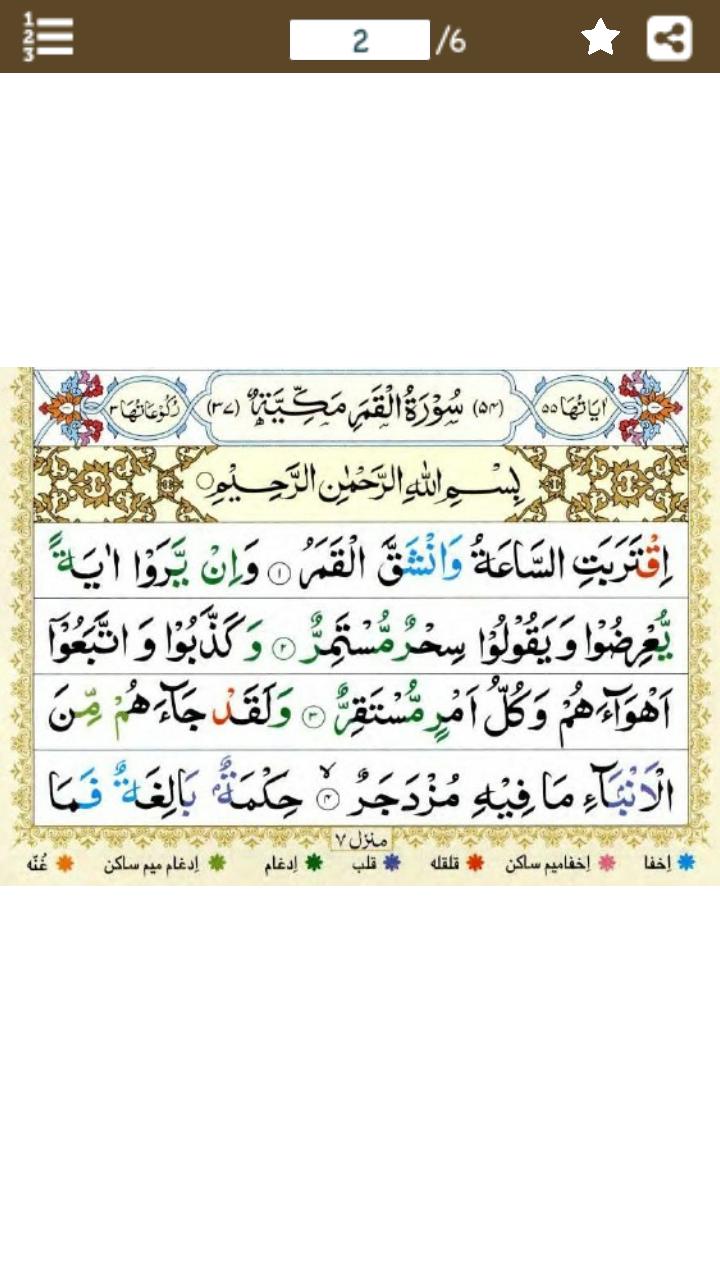 1
2
3
2 /6
اٰیَاتُهَا ۵۵
(۵۴) سُوْرَةُ الْقَمَرِ مَكِّیَّةٌ (۳۷)
رُكُوْعَاتُهَا ۳
بِسْمِ اللّٰهِ الرَّحْمٰنِ الرَّحِیْمِ
اِقْتَرَبَتِ السَّاعَةُ وَانْشَقَّ الْقَمَرُ ۝۱ وَاِنْ یَّرَوْا اٰیَةً
یُّعْرِضُوْا وَیَقُوْلُوْا سِحْرٌ مُّسْتَمِرٌّ ۝۲ وَكَذَّبُوْا وَاتَّبَعُوْۤا
اَهْوَآءَهُمْ وَكُلُّ اَمْرٍ مُّسْتَقِرٌّ ۝۳ وَلَقَدْ جَآءَهُمْ مِّنَ
الْاَنْۢبَآءِ مَا فِیْهِ مُزْدَجَرٌ ۝۴ۙ حِكْمَةٌۢ بَالِغَةٌ فَمَا
منزل ۷
اِخفا اِخفامیم ساکن قلقله قلب اِدغام اِدغام میم ساکن غُنّه